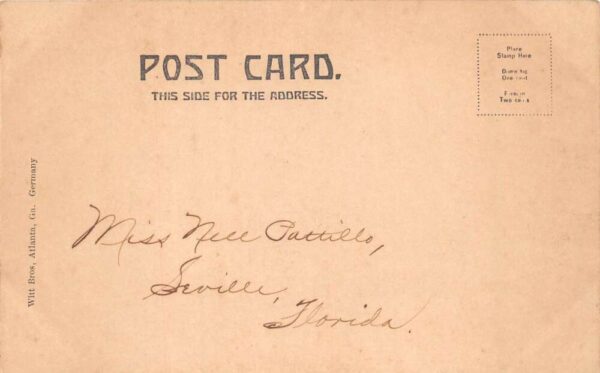 POST CARD.
THIS SIDE FOR THE ADDRESS.
Place
Stamp Here
Domestic
One cent
Foreign
Two cents
Witt Bros, Atlanta, Ga. Germany
Miss Nell Pattillo,
Seville,
Florida.